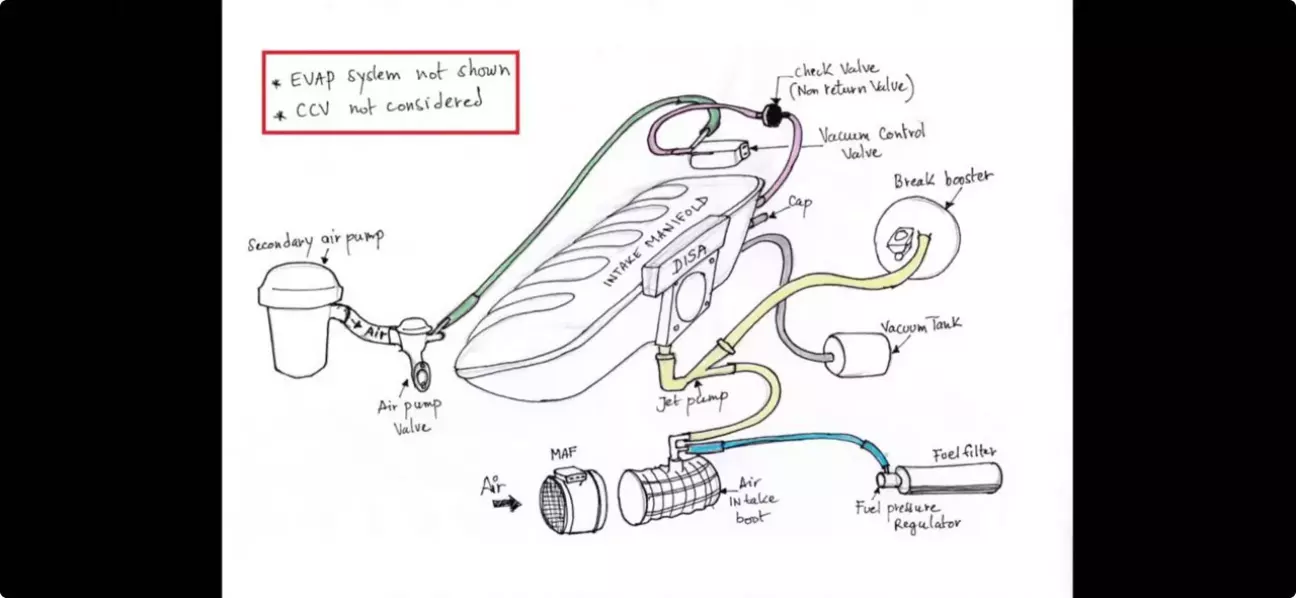 * EVAP system not shown
* CCV not considered
check valve
(Non return Valve)
Vacuum Control
Valve
Break booster
Cap
INTAKE MANIFOLD
DISA
Secondary air pump
Air
Vacuum Tank
Air pump
Valve
Jet pump
MAF
Air
Air
INtake
boot
Fuel filter
Fuel pressure
Regulator